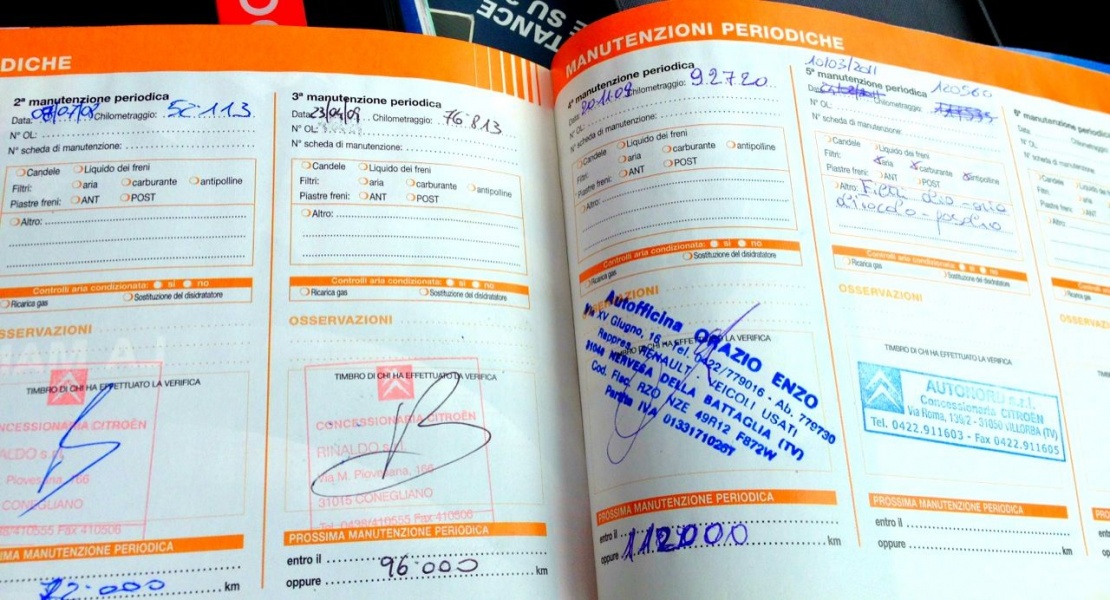 DICHE
2ª manutenzione periodica
Data: 08/07/08 Chilometraggio: 52.113
N° OL:
N° scheda di manutenzione:
Candele Liquido dei freni
Filtri: aria carburante antipolline
Piastre freni: ANT POST
Altro:
Controlli aria condizionata: si no
Ricarica gas Sostituzione del disidratatore
SSERVAZIONI
TIMBRO DI CHI HA EFFETTUATO LA VERIFICA
NCESSIONARIA CITROËN
ALDO s.r.l.
Piovesana, 166
CONEGLIANO
38/410555 Fax 410506
IMA MANUTENZIONE PERIODICA
72.000 km
3ª manutenzione periodica
Data: 23/04/09 Chilometraggio: 76.813
N° OL:
N° scheda di manutenzione:
Candele Liquido dei freni
Filtri: aria carburante antipolline
Piastre freni: ANT POST
Altro:
Controlli aria condizionata: si no
Ricarica gas Sostituzione del disidratatore
OSSERVAZIONI
TIMBRO DI CHI HA EFFETTUATO LA VERIFICA
CONCESSIONARIA CITROËN
RINALDO s.r.l.
Via M. Piovesana, 166
31015 CONEGLIANO
Tel. 0438/410555 Fax 410506
PROSSIMA MANUTENZIONE PERIODICA
entro il
oppure 96.000 km
MANUTENZIONI PERIODICHE
4ª manutenzione periodica
Data: 20.11.09 Chilometraggio: 92720
N° OL:
N° scheda di manutenzione:
Candele Liquido dei freni
Filtri: aria carburante antipolline
Piastre freni: ANT POST
Altro:
Controlli aria condizionata: si no
Ricarica gas Sostituzione del disidratatore
OSSERVAZIONI
TIMBRO DI CHI HA EFFETTUATO LA VERIFICA
Autofficina ORAZIO ENZO
Via XV Giugno, 16 - Tel. 0422/779016 - Ab. 779730
Rappres. RENAULT - VEICOLI USATI
31040 NERVESA DELLA BATTAGLIA (TV)
Cod. Fisc. RZO NZE 49R12 F872W
Partita IVA 01331710267
PROSSIMA MANUTENZIONE PERIODICA
entro il
oppure 112000 km
10/03/2011
5ª manutenzione periodica
120560
Chilometraggio:
N° OL:
N° scheda di manutenzione:
Candele Liquido dei freni
Filtri: aria carburante antipolline
Piastre freni: ANT POST
Altro: Filtri olio - aria
Controlli aria condizionata: si no
Ricarica gas Sostituzione del disidratatore
OSSERVAZIONI
TIMBRO DI CHI HA EFFETTUATO LA VERIFICA
AUTONORD s.r.l.
Concessionaria CITROËN
Via Roma, 139/2 - 31050 VILLORBA (TV)
Tel. 0422.911603 - Fax 0422.911605
PROSSIMA MANUTENZIONE PERIODICA
entro il
oppure km